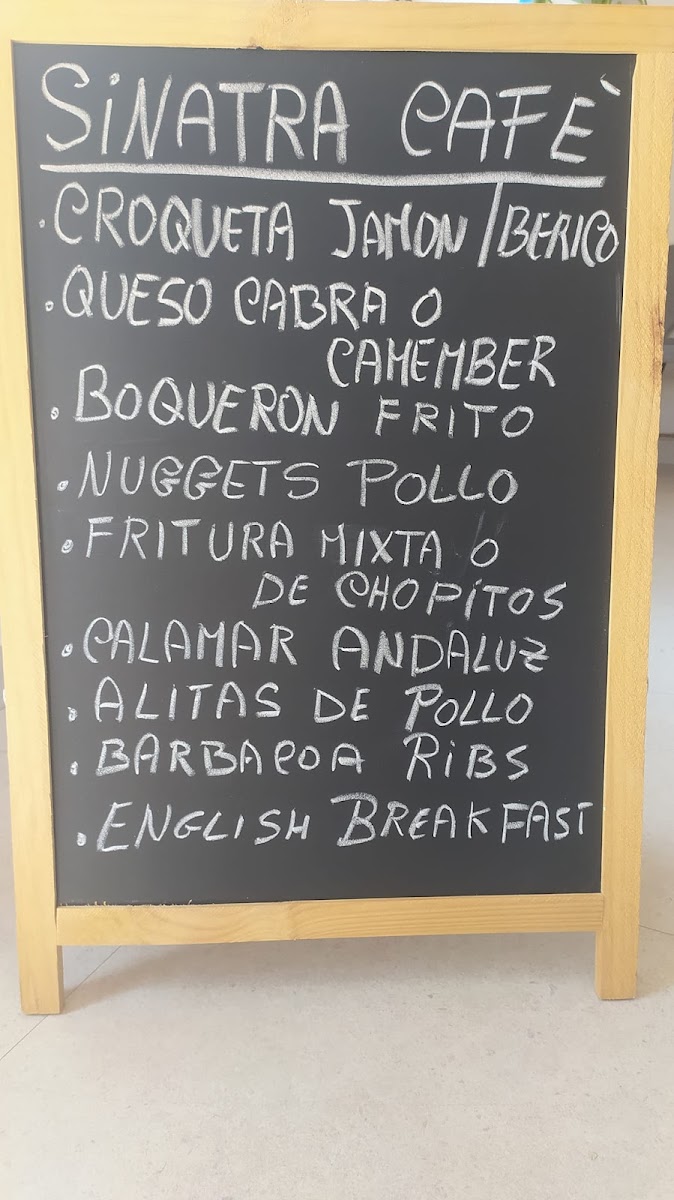 SiNATRA CAFÈ
. CROQUETA JAMON IBERICO
. QUESO CABRA O
CAMEMBER
. BOQUERON FRITO
. NUGGETS POLLO
. FRITURA MIXTA O
DE CHOPITOS
. CALAMAR ANDALUZ
. ALITAS DE POLLO
. BARBACOA RiBS
. ENGLISH BREAKFAST